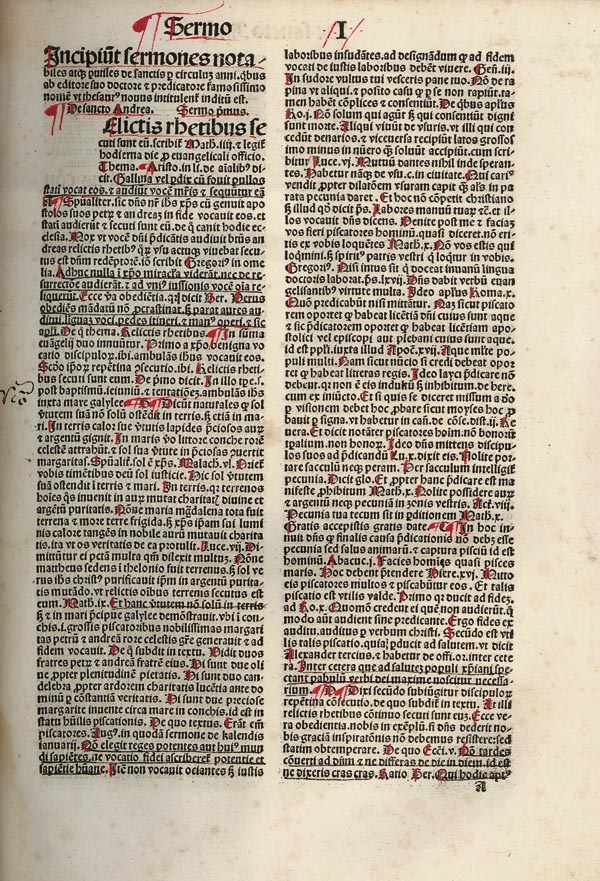 Sermo I
Incipiūt sermones nota-
biles atqꝫ vtiles de sanctis ꝑ circulū anni. qbus
ab editore suo doctore & predicatore famosissimo
nomē vt thesaurꝰ nouus intitulent̄ inditū est.
De sancto Andrea. Sermo pmus.
Elictis rhetibus se
cuti sunt eū. scribit̄ Math. iiij. & legit̄
hodierna die ꝓ euangelicali officio.
Thema. Aristo. in li. de aīalibꝰ di-
cit. Gallina vel pdix cū fouit pullos
stati vocat eos. & audiūt vocē mr̄is & sequūtur eā
Spūaliter. sic dn̄s nr̄ ihs xp̄s cū genuit apo
stolos suos petrū & andreā in fide vocauit eos. et
stati audierūt & secuti sunt eū. de q̄ canit hodie ec-
clesia. Mox vt vocē dn̄i p̄dicātis audiuit btūs an
dreas relictis rhetibꝰ quoꝝ vsu actuqꝫ viuebat secu-
tus est dn̄m redēptorē. iō scribit Gregoriꝰ in ome
lia. Adhuc nulla ī xp̄o miracl̄a viderāt. nec de re-
surrectiōe audierāt. & ad vnꝰ iussionis vocē oīa re-
liquerūt. Ecce va obediētia. q̄r dicit Ber. Verus
obediēs mādatū nō ꝓcrastinat. sꝫ parat aures au-
ditui. linguā voci. pedes itineri. & manꝰ operi. & sic
De q̄ thema. Relictis rhetibus. In summa
euāgelij duo innuūtur. Primo a xp̄o benigna vo
catio discipuloꝝ. ibi. ambulās ihus vocauit eos.
Scdō ip̄oꝝ repētina ꝓsecutio. ibi. Relictis rheti-
bus secuti sunt eum. De pmo dicit. In illo tp̄e. s.
post baptismū. ieiuniū. & tentatiōes. ambulās ihs
iuxta mare galylee Dicūt naturales q̄ sol
vtutem suā nō solū ostēdit in terris. sꝫ etiā in ma-
ri. In terris calor sue vtutis lapides p̄ciosos aurū
& argentū gignit. In maris vo littore conche rorē
celestē attrahūt. & sol sua vtute in p̄ciosas ꝓuertit
margaritas. Spūalit̄. sol ē xp̄s. Malach. vl. Oriet̄
vobis timētibus deū sol iusticie. Hic sol vtutem
suā ostendit ī terris & mari. In terris. qr terrenos
hoīes qs inuenit in aurū mutat charitatꝭ diuine et
argētū puritatis. Nōne maria magdalena tota fuit
terrena & more terre frigida. sꝫ xp̄s ip̄am sui lumi
nis calore tangēs in nobile aurū mutauit charita
tis. ita vt os veritatis de ea protulit. Luce. vij. Di-
mittūtur ei pctā multa qm̄ dilexit multum. Nōne
matheus sedens ī thelonio fuit terrenus. sꝫ sol ve
rus ihs christꝰ purificauit ip̄m in argentū purita-
tis mutādo. vt relictis oībus terrenis secutus est
eum. Math. ix. Et hanc vtutem nō solū in terris
sꝫ & in mari p̄ncipue galylee demōstrauit. vbi ī con-
chis. i. grossis piscatoribus nobilissimas margari
tas petrū & andreā rore celestis grē generauit & ad
fidem vocauit. De q̄ subdit in textu. Vidit duos
fratres petrū & andreā fratrē eius. Hi sunt due oli
ue ꝓpter plenitudinē pietatis. Hi sunt duo can-
delabra ꝓpter ardorem charitatis lucētia ante do
minū ꝓ constantiā veritatis. Hi sunt due preciose
margarite inuente circa mare in conchis. id est in
statu hūilis piscationis. De quo textus. Erāt em̄
piscatores. Augꝰ. in quodā sermone de kalendis
ianuarij. Nō elegit reges potentes aut huiꝰ mun
di sapiētes. ne vocatio fidei ascriberet̄ potentie et
sapiētie hūane. Itē non vocauit ociantes sꝫ iustis
laboribus insudātes. ad designādum q̄ ad fidem
vocati de iustis laboribus debēt viuere. Gen̄. iij.
In sudore vultus tui vesceris pane tuo. Nō de ra
pina vt aliqui. & posito casu q̄ ꝑ se non rapiūt. ta-
men habēt cōplices & consentiūt. De qbus aplūs
Ro. j. Nō solum qui agūt sꝫ qui consentiūt digni
sunt morte. Aliqui viuūt de vsuris. vt illi qui con
cedūt denarios. & viceuersa recipiūt latos grossos
imo minus in nūero q̄ soluūt accipiūt. cum scri-
bitur Luce. vj. Mutuū dantes nihil inde speran-
tes. Habetur nāqꝫ de vsu. c. in ciuitate. Qui cariꝰ
vendit ꝓpter dilatōem vsuram capit q̄ alꝰs in pa
rata pecunia daret. Et hoc nō cōpetit christiano
sꝫ illud qd dicit ps. Labores manuū tuaꝝ &c. et il-
los vocauit dn̄s dicens. Venite post me & faciaʒ
vos fieri piscatores hominū. quasi diceret. nō eri-
tis ex vobis loquētes Math. x. Nō vos estis qui
loqmini. sꝫ spūs patris vestri qi loqtur in vobis.
Gregoriꝰ. Nisi intus sit q̄ doceat inuanū lingua
doctoris laborat. ps. lxvij. Dn̄s dabit verbū euan
gelisantibꝰ virtute multa. Ideo aplūs Roma. x.
Quō predicabūt nisi mittātur. Naʒ sicut piscato
rem oportet ꝙ habeat licētiā dn̄i cuius sunt aque
& sic p̄dicatorem oportet ꝙ habeat licētiam apo-
stolici vel episcopi aut plebani cuius sunt aque.
id est ppl̄i. iuxta illud Apoc̄. xvij. Aque mlt̄e po-
puli multi. Nam sicut nūcio si credi debeat opor
tet ꝙ habeat literas regis. Ideo layci p̄dicare nō
debent. qr non ē eis indultū sꝫ inhibitum. de here.
cum ex iniūcto. Et si quis se diceret missum a dō
ꝑ visionem debet hoc ꝓbare sicut moyses hoc ꝓ
bauit ꝑ signa. vt habetur in can. de cōse. dist. ij. Re
uera. Et dicit notātr̄ piscatores hoīm. nō bonorū
tp̄alium. non honoꝝ. Ideo dn̄s mittens discipu-
los suos ad p̄dicandū Lu. x. dixit eis. Nolite por-
tare sacculū neqꝫ peram. Per sacculum intelligit̄
pecunia. Dicit glo. Et ꝓpter hanc p̄dicare est ma
nifeste ꝓhibitum Math. x. Nolite possidere aurū
& argentū neqꝫ pecuniā in zonis vestris. Act̄. viij.
Pecunia tua tecum sit in ꝑditionem Math. x.
Gratis accepistis gratis date. In hoc in-
nuit dn̄s ꝙ finalis causa p̄dicationis nō debʒ esse
pecunia sed salus animarū. & captura pisciū id est
hominū. Abacuc. j. Facies homies quasi pisces
maris. Hoc debent p̄tendere Hiere. xvj. Mitto
eis piscatores multos & piscabūtur eos. Et talis
piscatio est vtilis valde. Primo qr ducit ad fideʒ.
ad Ro. x. Quomō credent ei quē non audierūt. q̄
modo aūt audient sine predicante. Ergo fides ex
auditu. auditus ꝑ verbum christi. Secūdo est vti
lis talis piscatio. quia ꝓducit ad salutem. vt dicit
Alexander tercius. & habetur de offi. or. inter cete
ra. Inter cetera que ad salutē populi xp̄iani spe-
ctant pabulū verbi dei maxime noscitur necessa-
rium. Dixi secūdo subiūgitur discipuloꝝ
repētina ꝓsecutio. de quo subdit̄ in textu. At illi
relictis rhetibus cōtinuo secuti sunt eum. Ecce ve-
ra obedientia. nobis in exēplū. si dn̄s dederit no-
bis gratiā inspiratōnis nō debemus resistere. sed
statim obtemperare. De quo Ecci. v. Nō tardes
cōuerti ad dn̄m & ne differas de die in diem. id est
ne dixeris cras cras. Ratio Ber. Qui hodie aptꝰ
a